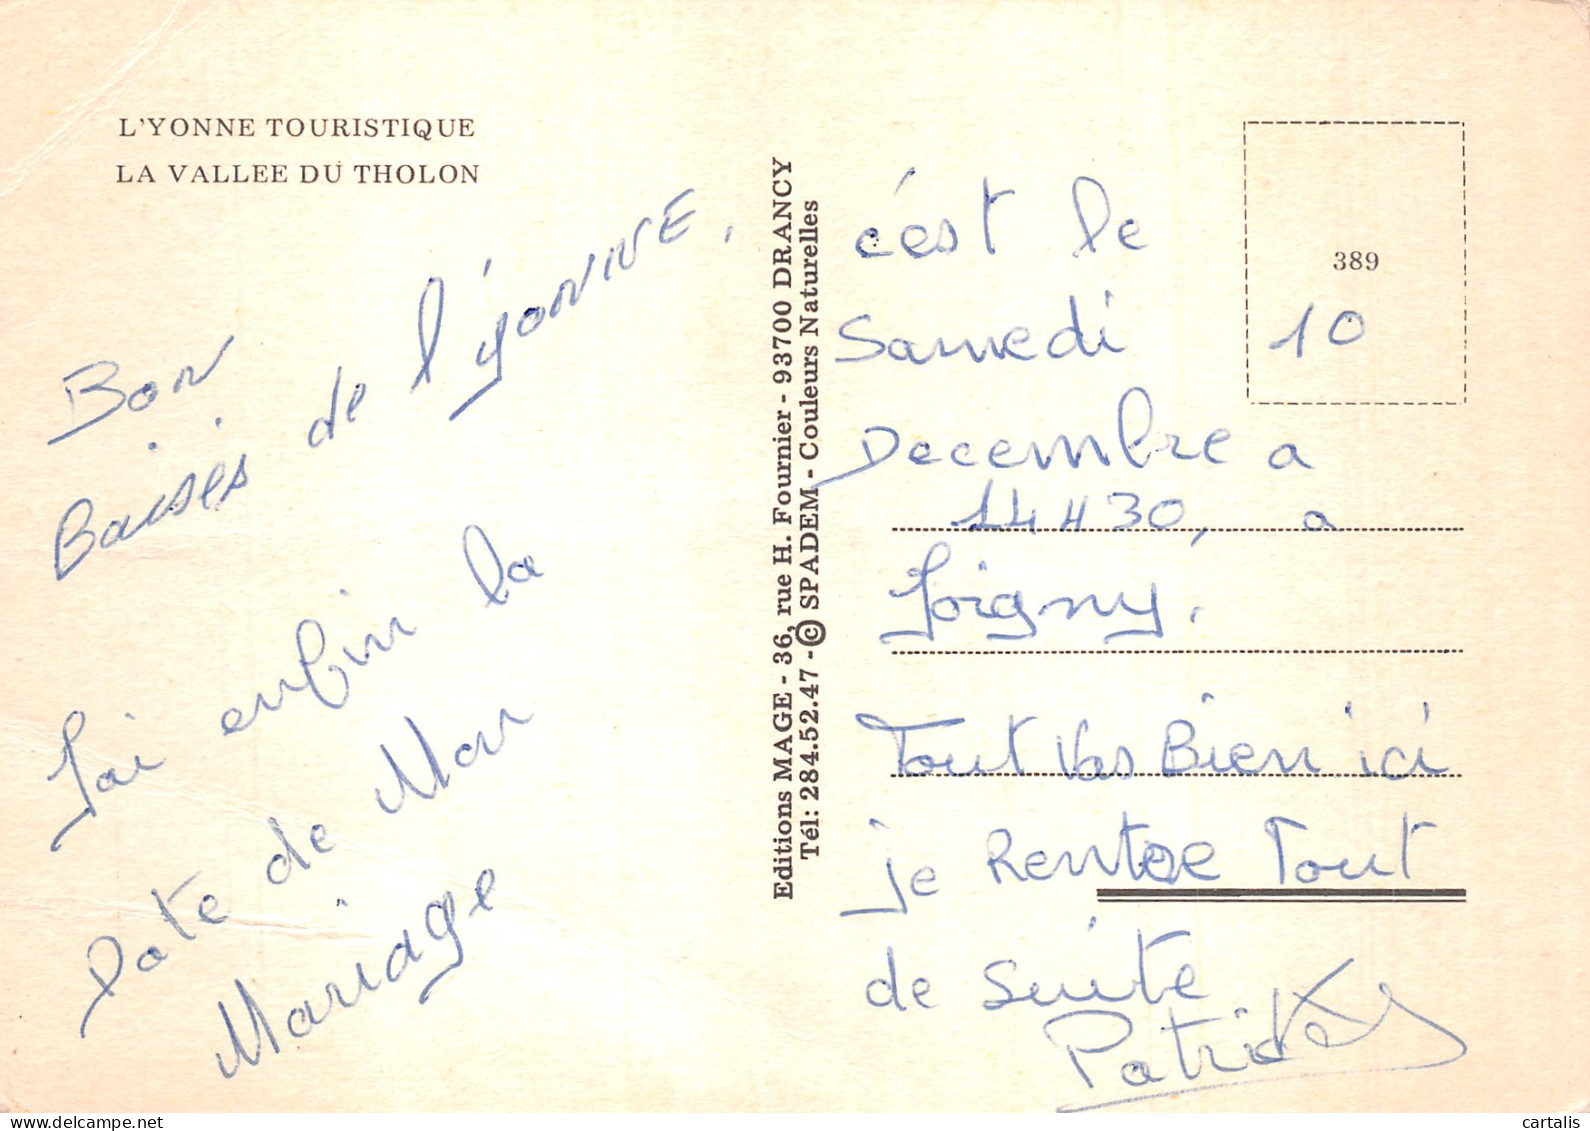 L'YONNE TOURISTIQUE
LA VALLEE DU THOLON
Bon
Baisés de l'yonne,
J'ai enfin la
date de Mon
Mariage
Editions MAGE - 36, rue H. Fournier - 93700 DRANCY
Tél: 284.52.47 - © SPADEM - Couleurs Naturelles
389
c'ést le
Samedi 10
Decembre a
14H30, a
Joigny,
Tout Vas Bien ici
je Rentre Tout
de suite
Patrick
© cartalis
delcampe.net